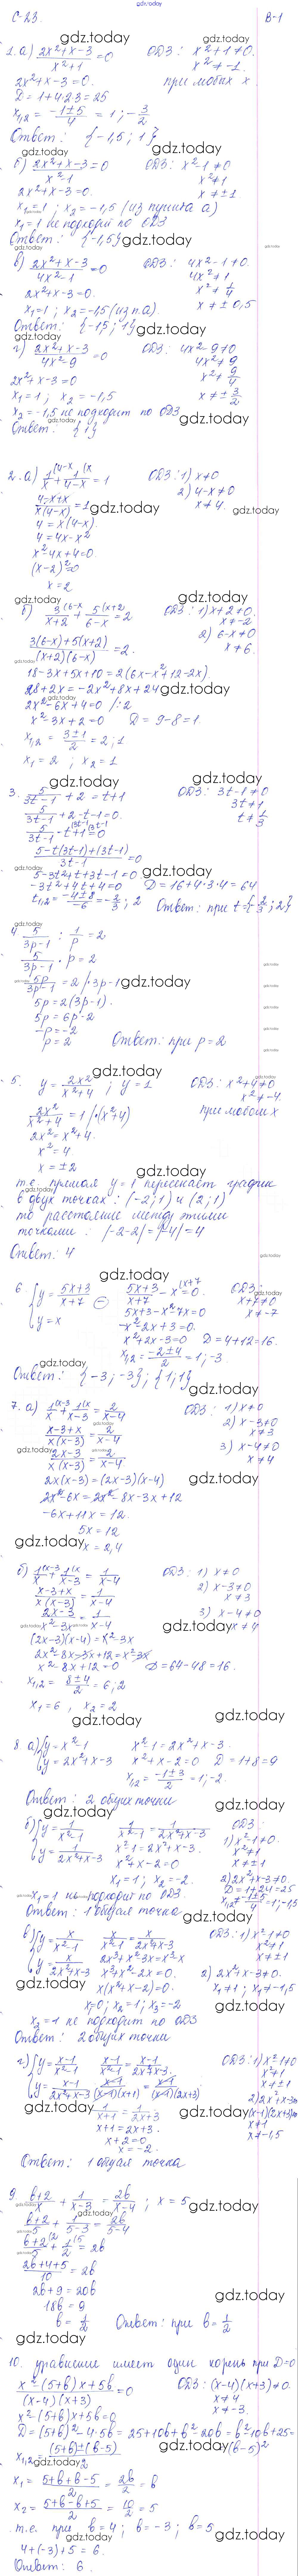 gdz.today
С-23.
В-1
1. а) (2x²+x-3)/(x²+1) = 0 ОДЗ: x²+1≠0.
x²≠-1.
2x²+x-3=0. при любых x
D = 1+4·2·3 = 25
x₁,₂ = (-1±5)/4 = 1; -3/2
Ответ: {-1,5; 1}
б) (2x²+x-3)/(x²-1) = 0 ОДЗ: x²-1≠0
x²≠1
2x²+x-3=0. x≠±1
x₁=1; x₂=-1,5 (из пункта а)
x₁=1 не подходит по ОДЗ
Ответ: {-1,5}
в) (2x²+x-3)/(4x²-1) = 0 ОДЗ: 4x²-1≠0.
4x²≠1
2x²+x-3=0. x²≠1/4
x₁=1; x₂=-1,5 (из п.а) x≠±0,5
Ответ: {-1,5; 1}
г) (2x²+x-3)/(4x²-9) = 0 ОДЗ: 4x²-9≠0
4x²≠9
2x²+x-3=0 x²≠9/4
x₁=1; x₂=-1,5 x≠±3/2
x₂=-1,5 не подходит по ОДЗ
Ответ: {1}
2. а) 1/x + 1/(4-x) = 1 ОДЗ: 1) x≠0
2) 4-x≠0
(4-x+x)/(x(4-x)) = 1 x≠4.
4 = x(4-x).
4 = 4x-x²
x²-4x+4=0.
(x-2)²=0
x=2
б) 3/(x+2) + 5/(6-x) = 2 ОДЗ: 1) x+2≠0.
x≠-2
(3(6-x)+5(x+2))/((x+2)(6-x)) = 2. 2) 6-x≠0
x≠6.
18-3x+5x+10=2(6x-x²+12-2x)
28+2x=-2x²+8x+24
2x²-6x+4=0 /:2
x²-3x+2=0 D=9-8=1.
x₁,₂ = (3±1)/2 = 2; 1
x₁=2; x₂=1
3. 5/(3t-1) + 2 = t+1 ОДЗ: 3t-1≠0
3t≠1
5/(3t-1) + 2-t-1=0. t≠1/3
5/(3t-1) - t+1=0
(5-t(3t-1)+(3t-1))/(3t-1) = 0
5-3t²+t+3t-1=0
-3t²+4t+4=0 D=16+4·3·4=64
t₁,₂ = (-4±8)/-6 = -2/3; 2 Ответ: при t={-2/3; 2}
4. 5/(3p-1) : 1/p = 2
5/(3p-1) · p = 2
5p/(3p-1) = 2 /·3p-1
5p=2(3p-1).
5p=6p-2
-p=-2
p=2 Ответ: при p=2
5. y = 2x²/(x²+4); y=1 ОДЗ: x²+4≠0
x²≠-4.
2x²/(x²+4) = 1 /·(x²+4) при любом x
2x²=x²+4.
x²=4.
x=±2
т.е. прямая y=1 пересекает график
в двух точках: (-2;1) и (2;1)
то расстояние между этими
точками: |-2-2|=|-4|=4
Ответ: 4
6. {y=(5x+3)/(x+7) (5x+3)/(x+7) - x = 0. ОДЗ:
x+7≠0
{y=x 5x+3-x²-7x=0 x≠-7
-x²-2x+3=0.
x²+2x-3=0 D=4+12=16.
x₁,₂ = (-2±4)/2 = 1; -3.
Ответ: {-3; -3}; {1; 1}
7. а) 1/x + 1/(x-3) = 2/(x-4) ОДЗ: 1) x≠0
2) x-3≠0
(x-3+x)/(x(x-3)) = 2/(x-4) x≠3
(2x-3)/(x(x-3)) = 2/(x-4) 3) x-4≠0
x≠4
2x(x-3)=(2x-3)(x-4)
2x²-6x=2x²-8x-3x+12
-6x+11x=12.
5x=12
x=2,4
б) 1/x + 1/(x-3) = 1/(x-4) ОДЗ: 1) x≠0
2) x-3≠0
(x-3+x)/(x(x-3)) = 1/(x-4) x≠3
3) x-4≠0
(2x-3)/(x²-3x) = 1/(x-4) x≠4
(2x-3)(x-4)=x²-3x
2x²-8x-3x+12=x²-3x
x²-8x+12=0 D=64-48=16.
x₁,₂ = (8±4)/2 = 6; 2
x₁=6, x₂=2
8. а) {y=x²-1 x²-1=2x²+x-3.
{y=2x²+x-3 x²+x-2=0 D=1+8=9
x₁,₂ = (-1±3)/2 = 1; -2.
Ответ: 2 общих точки
б) {y=1/(x²-1) 1/(x²-1) = 1/(2x²+x-3) ОДЗ:
1) x²-1≠0.
{y=1/(2x²+x-3) x²-1=2x²+x-3. x²≠1
x²+x-2=0 x≠±1
x₁=1; x₂=-2. 2) 2x²+x-3≠0.
D=1+24=25
x₁=1 не подходит по ОДЗ. x₁,₂≠(-1±5)/4=1; -1,5
Ответ: 1 общая точка
в) {y=x/(x²-1) x/(x²-1) = x/(2x²+x-3) ОДЗ: 1) x²-1≠0
x²≠1
{y=x/(2x²+x-3) 2x³+x²-3x=x³-x x≠±1
x³+x²-2x=0. 2) 2x²+x-3≠0.
x(x²+x-2)=0. x₁≠1; x≠-1,5
x=0; x₂=1; x₃=-2
x₂=1 не подходит по ОДЗ
Ответ: 2 общих точки
г) {y=(x-1)/(x²-1) (x-1)/(x²-1) = (x-1)/(2x²+x-3) ОДЗ: 1) x²-1≠0
x²≠1
{y=(x-1)/(2x²+x-3) (x-1)/((x-1)(x+1)) = (x-1)/((x-1)(2x+3)) x≠±1
2) 2x²+x-3≠0
1/(x+1) = 1/(2x+3) (x-1)(2x+3)≠0
x+1=2x+3. x≠1
x+2=0 x≠-1,5
x=-2.
Ответ: 1 общая точка
9. (b+2)/x + 1/(x-3) = 2b/(x-4); x=5
(b+2)/5 + 1/(5-3) = 2b/(5-4)
(b+2)/5 + 1/2 = 2b
(2b+4+5)/10 = 2b
2b+9=20b
18b=9
b=1/2 Ответ: при b=1/2
10. уравнение имеет один корень при D=0
(x²-(5+b)x+5b)/((x-4)(x+3)) = 0 ОДЗ: (x-4)(x+3)≠0.
x≠4
x²-(5+b)x+5b=0 x≠-3.
D=(5+b)²-4·5b=25+10b+b²-20b=b²-10b+25=
x₁,₂ = ((5+b)±(b-5))/2 =(b-5)²
x₁ = (5+b+b-5)/2 = 2b/2 = b
x₂ = (5+b-b+5)/2 = 10/2 = 5
т.е. при b=4; b=-3; b=5
4+(-3)+5=6.
Ответ: 6.
gdz.today